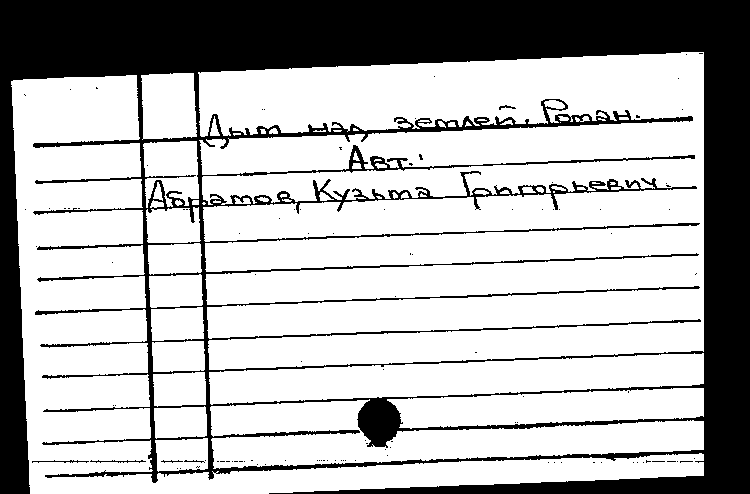 Дым над землей. Роман.
Авт.:
Абрамов, Кузьма Григорьевич.